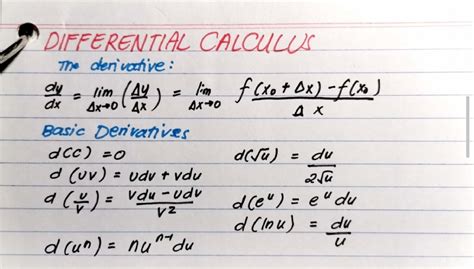 DIFFERENTIAL CALCULUS
The derivative:
dy/dx = lim Δx→0 (Δy/Δx) = lim Δx→0 f(x₀ + Δx) - f(x₀) / Δx
Basic Derivatives
d(c) = 0
d(uv) = udv + vdu
d(u/v) = vdu - udv / v²
d(uⁿ) = nuⁿ⁻¹ du
d(√u) = du / 2√u
d(eᵘ) = eᵘ du
d(ln u) = du / u